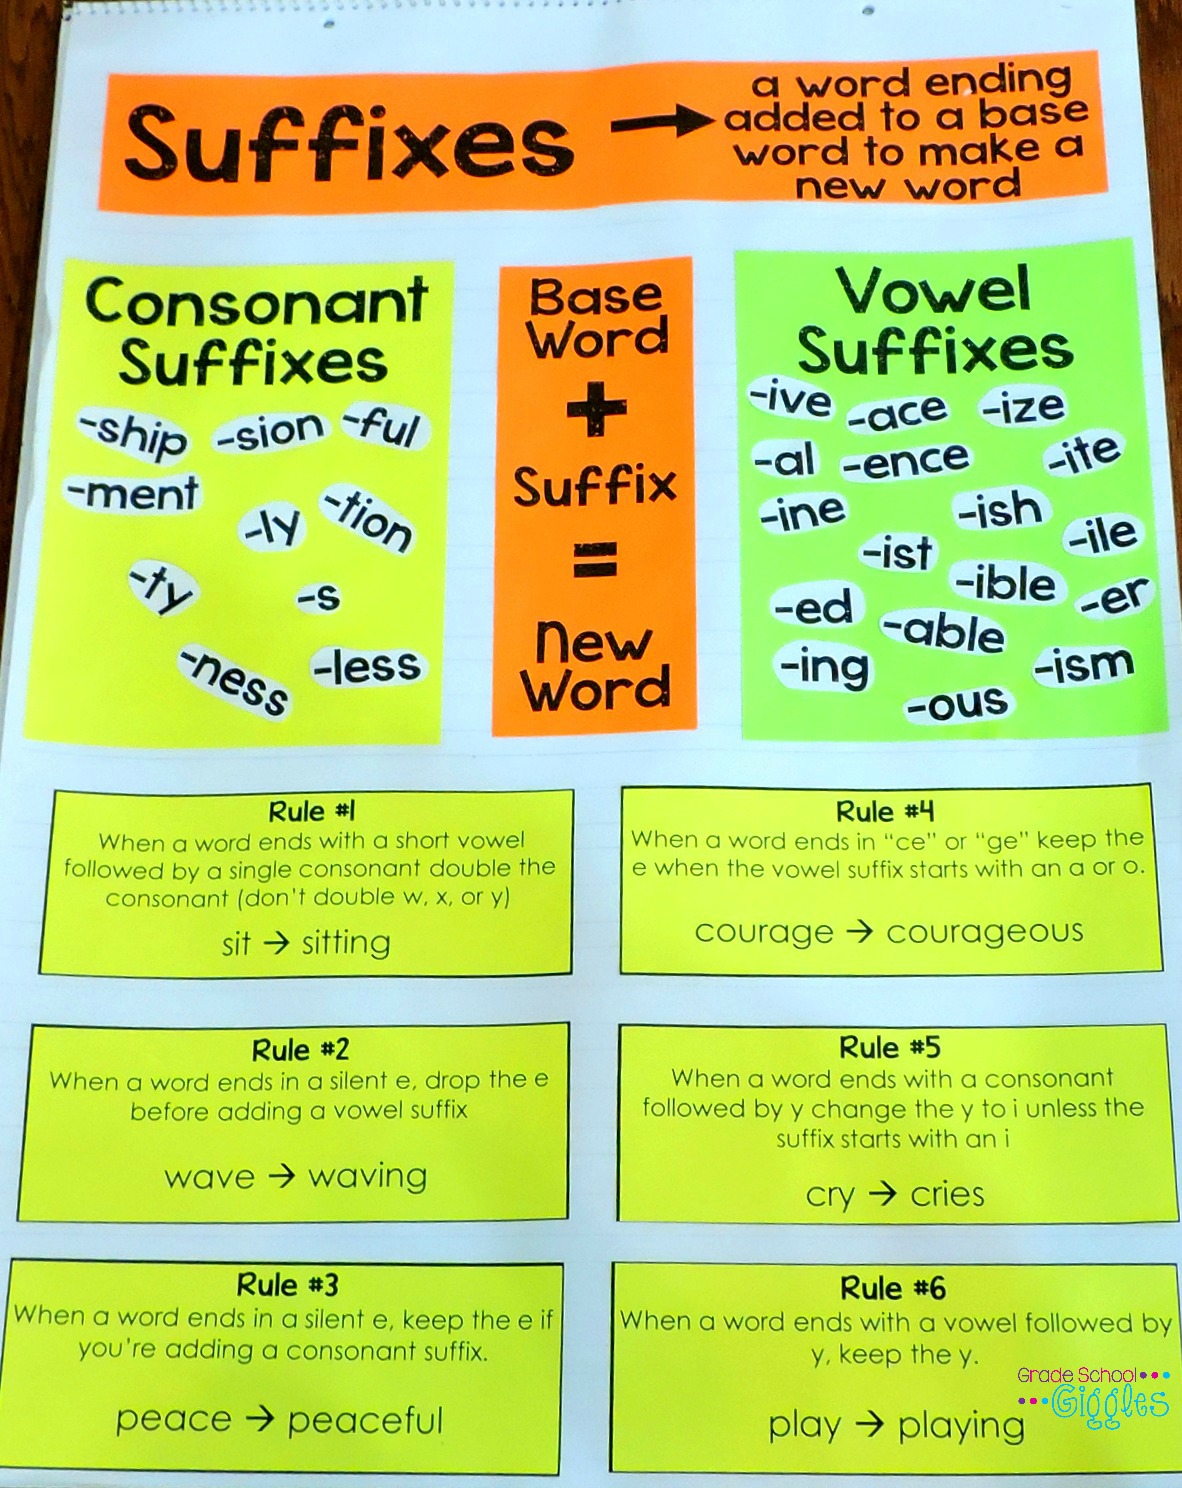 Suffixes →
a word ending
added to a base
word to make a
new word
Consonant
Suffixes
-ship -sion -ful
-ment
-ly -tion
-ty -s
-ness -less
Base
Word
+
Suffix
=
New
Word
Vowel
Suffixes
-ive -ace -ize
-al -ence -ite
-ine -ish -ile
-ist
-ible -er
-ed -able
-ing -ism
-ous
Rule #1
When a word ends with a short vowel
followed by a single consonant double the
consonant (don't double w, x, or y)
sit → sitting
Rule #2
When a word ends in a silent e, drop the e
before adding a vowel suffix
wave → waving
Rule #3
When a word ends in a silent e, keep the e if
you're adding a consonant suffix.
peace → peaceful
Rule #4
When a word ends in "ce" or "ge" keep the
e when the vowel suffix starts with an a or o.
courage → courageous
Rule #5
When a word ends with a consonant
followed by y change the y to i unless the
suffix starts with an i
cry → cries
Rule #6
When a word ends with a vowel followed by
y, keep the y.
play → playing
Grade School
Giggles